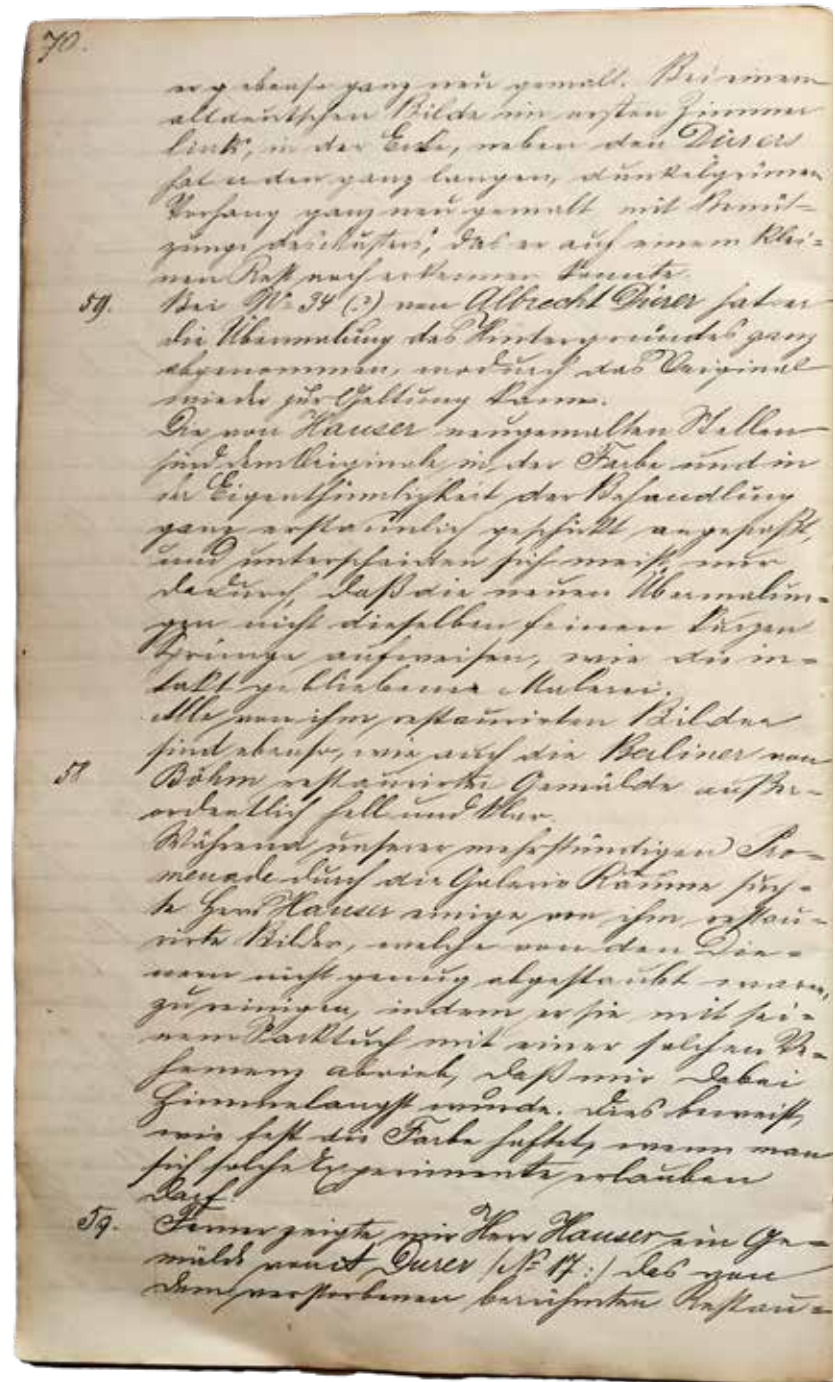 70.
er ebenso ganz neu gemalt. Bei einem
altdeutschen Bilde im ersten Zimmer
links, in der Ecke, neben den Dürers
hat er den ganz langen, dunkelgrünen
Vorhang ganz neu gemalt mit Benüt-
zung des Musters, das er auf einem klei-
nen Rest noch erkennen konnte.
59. Bei No 34 (?) von Albrecht Dürer hat er
die Übermalung des Hintergrundes ganz
abgenommen, wodurch das Original
wieder zur Geltung kam.
Die von Hauser neugemalten Stellen
sind dem Originale, in der Farbe und in
der Eigenthümlichkeit der Behandlung
ganz erstaunlich geschickt angepaßt,
und unterscheiden sich meist nur
dadurch, daß die neuen Übermalun-
gen nicht dieselben feinen kurzen
Sprünge aufweisen, wie die in-
takt gebliebene Malerei.
Alle von ihm restaurirten Bilder
sind ebenso, wie auch die Berliner von
58 Böhm restaurirten Gemälde außer-
ordentlich hell und klar.
Während unserer mehrstündigen Pro-
menade durch die Galerie Räume such-
te Herr Hauser einige von ihm restau-
rirte Bilder, welche von den Die-
nern nicht genug abgestaubt waren,
zu reinigen, indem er sie mit sei-
nem Sacktuch mit einer solchen Ve-
hemenz abrieb, daß mir dabei
himmelangst wurde. Dies beweist,
wie fest die Farbe haftet, wenn man
sich solche Experimente erlauben
darf.
59. Ferner zeigte mir Herr Hauser ein Ge-
mälde von A Dürer (No 17:) das von
dem verstorbenen berühmten Restau-